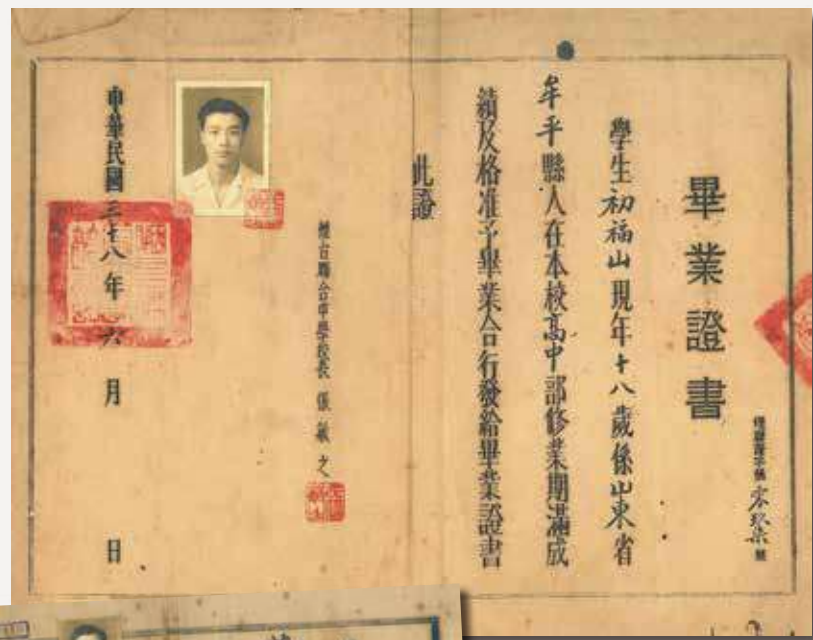 畢業證書
學生初福山現年十八歲係山東省
牟平縣人在本校高中部修業期滿成
績及格准予畢業合行發給畢業證書
此證
煙台聯合中學校長 張敏之
中華民國三十八年六月 日